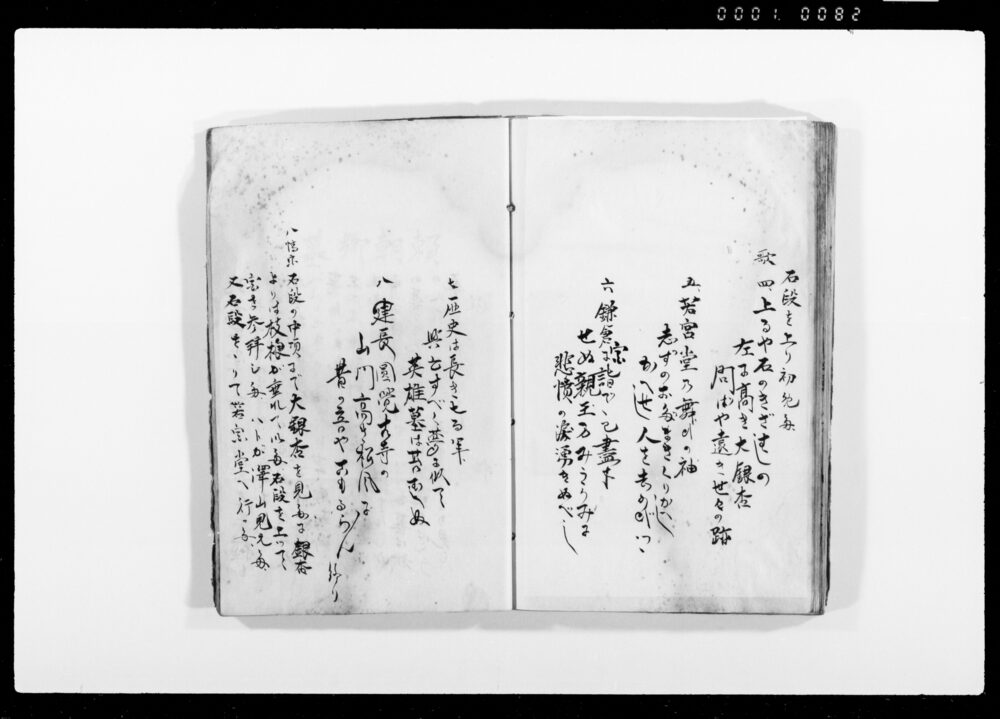 0001. 0082
石段を上り初めた
歌 四、上るや石のきざはしの
左に高き大銀杏
問はばや遠き世々の跡
五、若宮堂の舞の袖
しずのおだまきくりかへし
かへせし人を
六、鎌倉宮に詣でては盡き
せぬ親王のみうらみに
悲憤の涙湧きぬべし
七、歴史は長き七百年
興亡すべて夢に似て
英雄墓は苔むしぬ
八、建長圓覺古寺の
山門高き松風に
昔の音やこもるらん 終り
八幡宮石段の中頃まで大銀杏を見た 銀杏
よりは枝根が垂れて 石段を上って
宮を参拝した ハトが澤山見えた
又石段を下りて若宮堂へ行った